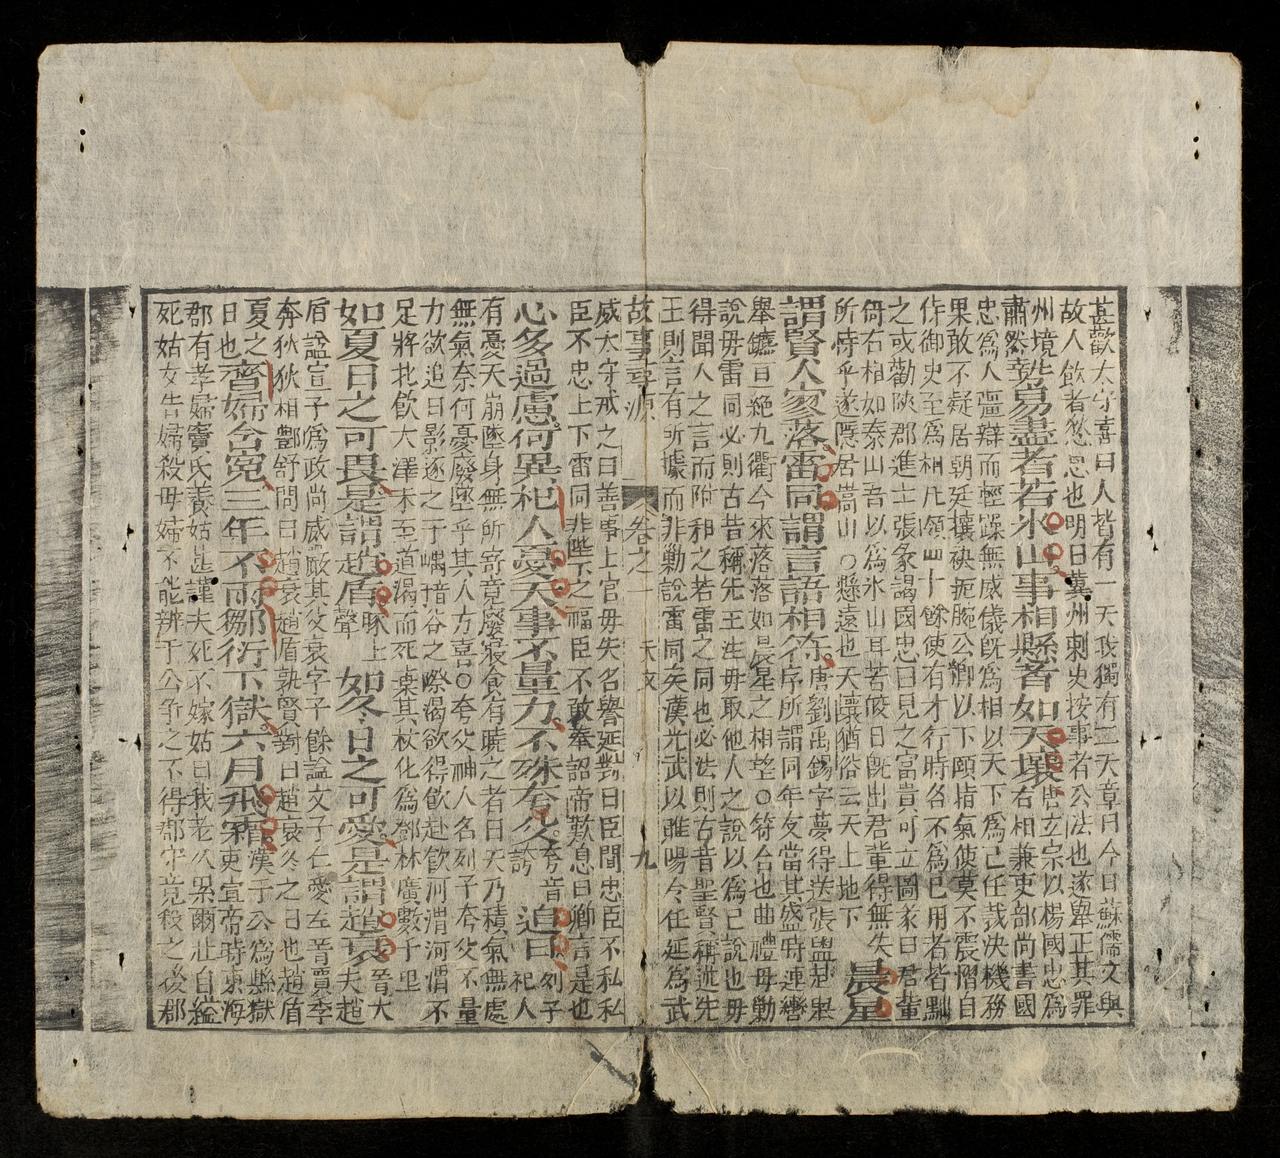 甚歡太守喜曰人皆有一天我獨有二天章曰今日蘇儒文與
故人飲者私恩也明日冀州刺史按事者公法也遂舉正其罪
州境肅然
勢易盡者若氷山事相縣者如天壤
唐玄宗以楊國忠為右相兼吏部尚書國
忠為人彊辯而輕躁無威儀旣為相以天下為己任裁決機務
果敢不疑居朝廷攘袂扼腕公卿以下頤指氣使莫不震慴自
侍御史至為相凡領四十餘使有才行時名不為己用者皆黜
之或勸陝郡進士張彖謁國忠曰見之富貴可立圖彖曰君輩
倚右相如泰山吾以為氷山耳若皎日旣出君輩得無失
所恃乎遂隱居嵩山○懸遠也天壤猶俗云天上地下
晨星
謂賢人寥落雷同謂言語相符
唐劉禹錫字夢得送張盥赴舉
序所謂同年友當其盛時連轡
舉鑣亘絕九衢今來落落如晨星之相望○符合也曲禮毋勦
說毋雷同必則古昔稱先王注毋取他人之說以為己說也毋
得聞人之言而附和之若雷之同也必法則古昔聖賢稱述先
王則言有所據而非勦說雷同矣漢光武以睢陽令任延為武
故事尋源
卷之一 天文 九
威太守戒之曰善事上官毋失名譽延對曰臣聞忠臣不私私
臣不忠上下雷同非陛下之福臣不敢奉詔帝歎息曰卿言是也
心多過慮何異杞人憂天事不量力不殊夸父
夸音誇
追日
列子杞人
有憂天崩墜身無所寄竟廢寢食有曉之者曰天乃積氣無處
無氣奈何憂廢墜乎其人方喜○夸父神人名列子夸父不量
力欲追日影逐之于嵎暘谷之際渴欲得飲赴飲河渭河渭不
足將北飲大澤未至道渴而死棄其杖化為鄧林廣數千里
如夏日之可畏是謂趙盾
豚上聲
如冬日之可愛是謂趙衰
晉大夫趙
盾諡宣子為政尚威嚴其父衰字子餘諡文子仁愛左晉賈季
奔狄狄相酆舒問曰趙衰趙盾孰賢對曰趙衰冬之日也趙盾
夏之日也
齊婦含寃三年不雨鄒衍下獄六月飛霜
漢于公為縣獄吏宣帝時東海
郡有孝婦竇氏養姑甚謹夫死不嫁姑曰我老久累爾壯自縊
死姑女告婦殺毋婦不能辨于公爭之不得郡守竟殺之後郡